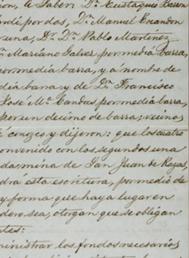 ion, á Saber: Dⁿ. Eustaquio Barron
por dos, Dⁿ. Manuel Escandon
una, Dr. Dⁿ. Pablo Martinez
Mariano Galvez por media barra,
por media barra, y á nombre de
dia barra y de Dⁿ. Francisco
José Mª. Landus por media barra,
por un decimo de barra, vecinos
conozco y dijeron: que los cuatro
convenido con los segundos una
la mina de San Juan de Rayas,
drá esta escritura, por medio de
y forma que haya lugar en
dero sea, otorgan que se obligan
tes:
ministrar los fondos necesarios